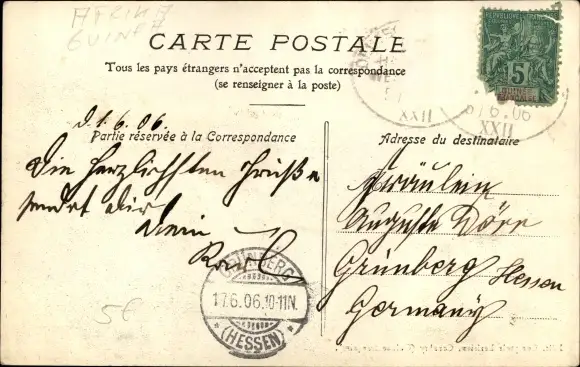 AFRIKA
GUINEA
CARTE POSTALE
Tous les pays étrangers n'acceptent pas la correspondance
(se renseigner à la poste)
5
GUINÉE
FRANÇAISE
6.06
XXII
XXII
d. 1.6.06.
Partie réservée à la Correspondance
Die herzlichsten Grüße
sendet Dir
Dein
Adresse du destinataire
Fräulein
Auguste Dörr
Grünberg Hessen
Germany
GRÜNBERG
17.6.06.10-11N.
(HESSEN)
5€